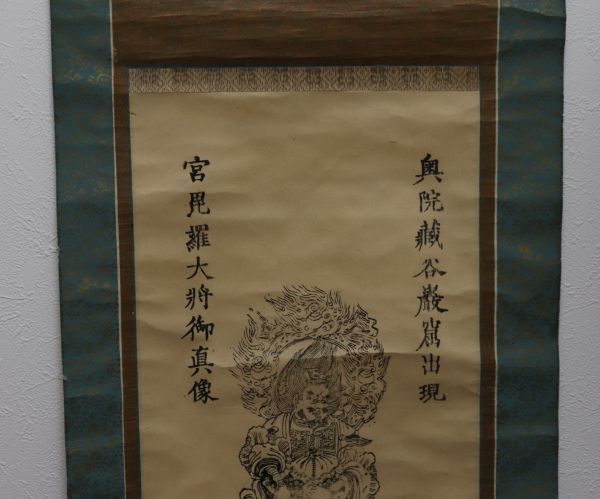 奥院藏谷巖窟出現
宮毘羅大將御真像